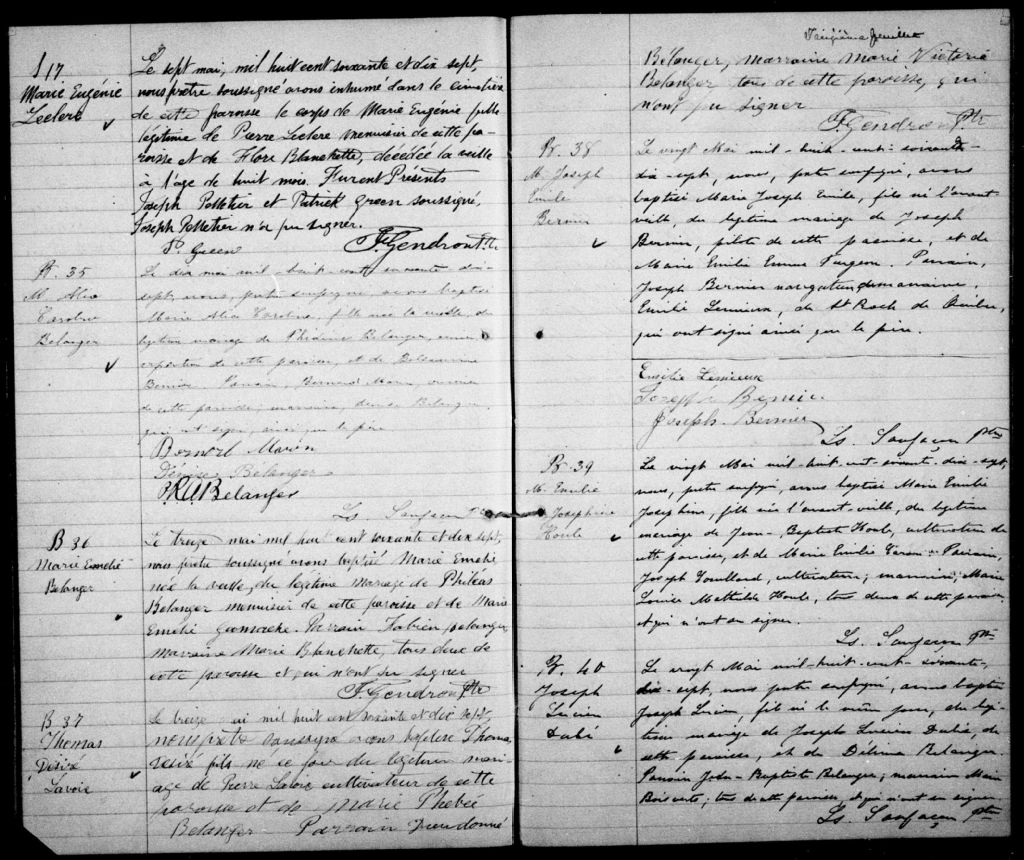 S 17
Marie Eugénie
Leclerc
Le sept mai, mil huit cent soixante et dix sept,
nous prêtre soussigné avons inhumé dans le cimetière
de cette paroisse le corps de Marie Eugénie fille
légitime de Pierre Leclerc menuisier de cette pa-
roisse et de Flore Blanchette, décédée la veille
à l'age de huit mois. Furent Présents
Joseph Pelletier et Patrick Green soussigné,
Joseph Pelletier n'a pu signer.
P. Green
F. Gendron Ptre
B. 35
M. Alice
Caroline
Belanger
Le dix mai mil-huit-cent soixante-dix-
sept, nous, prêtre soussigné, avons baptisé
Marie Alice Caroline, fille née la veille, du
légitime mariage de Belanger,
de cette paroisse, et de
Bernier Parrain, Bernard Marin,
de cette paroisse; marraine, Belanger,
qui ont signé, ainsi que le père
Bernard Marin
Belanger
Belanger
Ls. Sanfaçon Ptre
B 36
Marie Emélie
Belanger
Le treize mai mil huit cent soixante et dix sept,
nous prêtre soussigné avons baptisé Marie Emélie
née la veille, du légitime mariage de Philéas
Belanger menuisier de cette paroisse et de Marie
Emélie Gamache. Parrain Fabien Belanger,
marraine Marie Blanchette, tous deux de
cette paroisse et qui n'ont su signer
F. Gendron Ptre
B 37
Thomas
Désiré
Lavoie
Le treize mai mil huit cent soixante et dix sept,
nous prêtre soussigné avons baptisé Thomas
Désiré fils né ce jour du légitime mari-
age de Pierre Lavoie cultivateur de cette
paroisse et de Marie Phebée
Belanger - Parrain Dieudonné
feuillet
Bélanger, Marraine Marie Victoria
Belanger tous de cette paroisse, qui
n'ont pu signer
F. Gendron Ptr
B. 38
M. Joseph
Emile
Bernier
Le vingt Mai mil-huit-cent-soixante-
dix-sept, nous, prêtre soussigné, avons
baptisé Marie Joseph Emile, fils né l'avant
veille, du légitime mariage de Joseph
Bernier, pilote de cette paroisse, et de
Marie Emilie Emma Turgeon. Parrain,
Joseph Bernier navigateur; marraine,
Emilie Lemieux, de St Roch de Québec,
qui ont signé ainsi que le père.
Emilie Lemieux
Joseph Bernier
Joseph Bernier
Ls. Sanfaçon Ptre
B. 39
M. Emilie
Josephine
Houle
Le vingt Mai mil-huit-cent-soixante-dix-sept,
nous, prêtre soussigné, avons baptisé Marie Emilie
Josephine, fille née l'avant-veille, du légitime
mariage de Jean-Baptiste Houle, cultivateur de
cette paroisse, et de Marie Emilie Parrain,
Joseph cultivateur; marraine, Marie
Louise Mathilde Houle, tous deux de cette paroisse
et qui n'ont su signer.
Ls. Sanfaçon Ptre
B. 40
Joseph
Lucien
Dubé
Le vingt Mai mil-huit-cent-soixante-
dix-sept, nous prêtre soussigné, avons baptisé
Joseph Lucien, fils né le même jour, du légi-
time mariage de Joseph Lucien Dubé, de
cette paroisse, et de Délima Belanger
Parrain Jean-Baptiste Belanger; marraine Marie
Boisverts; tous de cette paroisse, et qui n'ont su signer
Ls. Sanfaçon Ptre